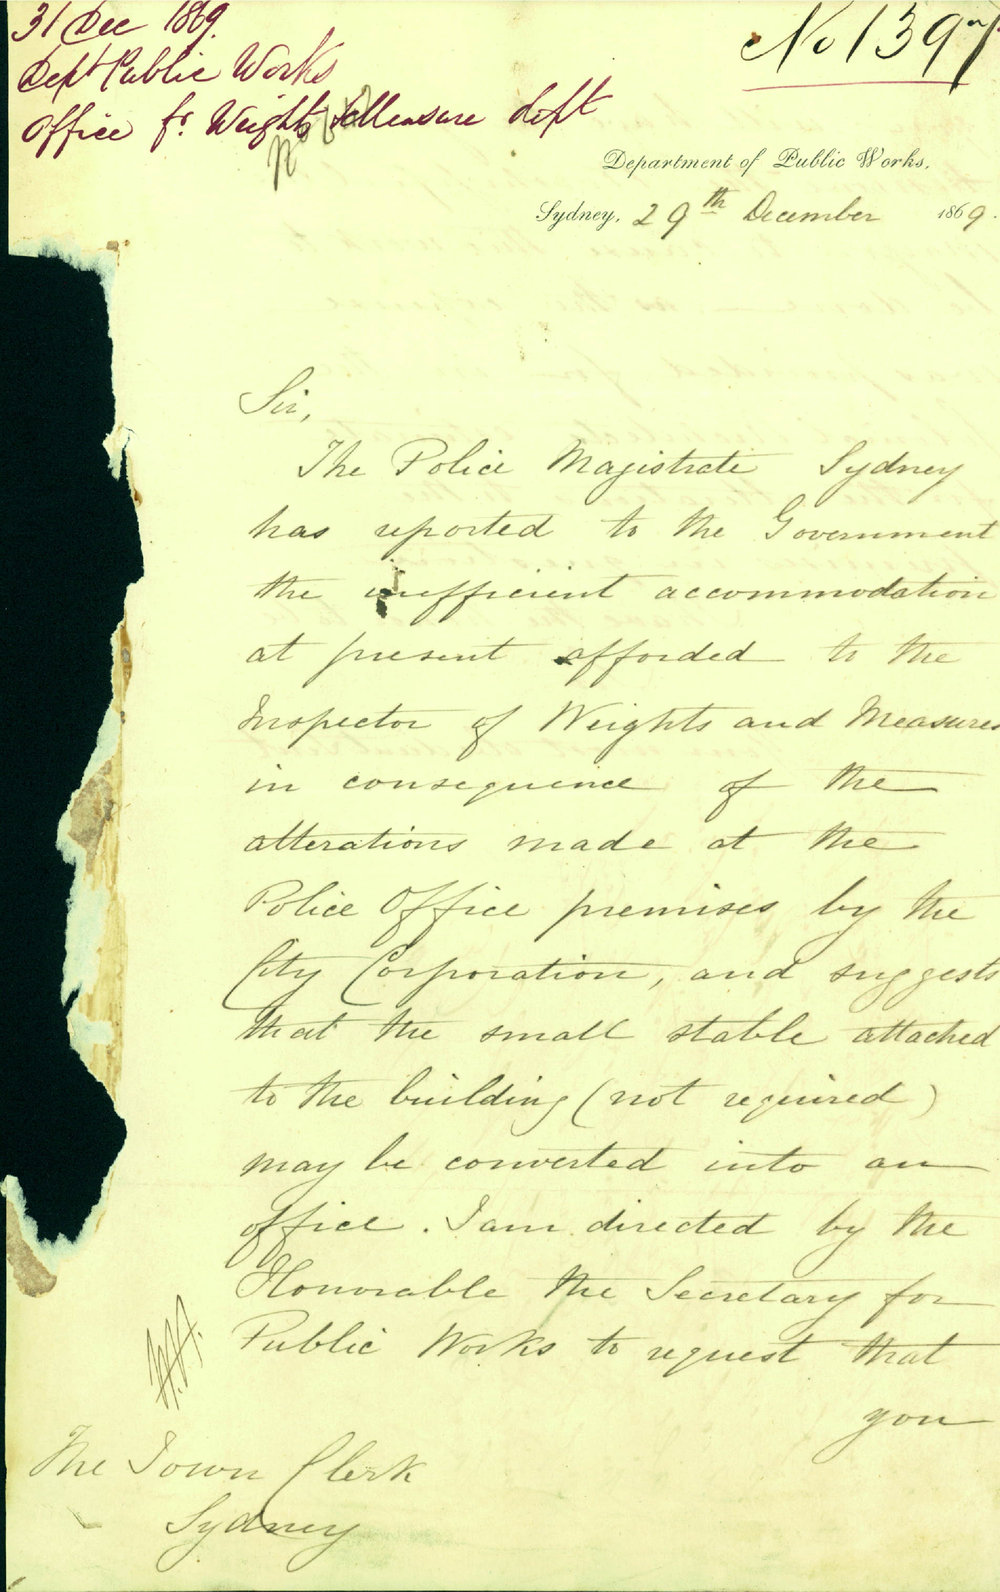 31 Dec 1869.
Dept Public Works
Office fr. Weight & Measure dept
No 1397
Department of Public Works,
Sydney, 29th December 1869.
Sir,
The Police Magistrate Sydney
has reported to the Government
the inefficient accommodation
at present afforded to the
Inspector of Weights and Measures
in consequence of the
alterations made at the
Police Office premises by the
City Corporation, and suggests
that the small stable attached
to the building (not required)
may be converted into an
office. I am directed by the
Honorable the Secretary for
Public Works to request that
you
The Town Clerk
Sydney